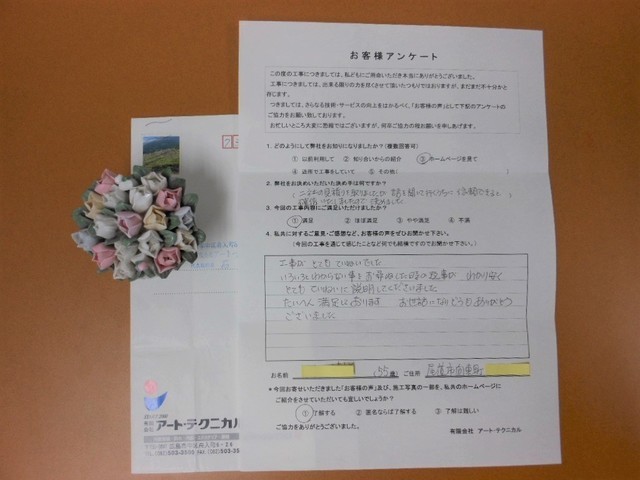 お客様アンケート
この度の工事につきましては、私どもにご用命いただき本当にありがとうございました。
工事につきましては、出来る限りの力を尽くさせて頂いたつもりではおりますが、まだまだ不十分かと
存じます。
つきましては、さらなる技術・サービスの向上をはかるべく、「お客様の声」として下記のアンケートの
ご協力をお願い致しております。
お忙しいところ大変に恐縮ではございますが、何卒ご協力の程お願いを申し上げます。
1. どのようにして弊社をお知りになりましたか？(複数回答可)
① 以前利用して ② 知り合いからの紹介 ③ ホームページを見て
④ 近所で工事をしていて ⑤ その他( )
2. 弊社をお決めいただいた決め手は何ですか？
3. 今回の工事内容にご満足いただけましたか？
① 満足 ② ほぼ満足 ③ やや満足 ④ 不満
4. 私共に対するご意見・ご感想など、お客様の声をぜひお聞かせ下さい。
(今回の工事を通じて感じたことなど何でも結構ですのでお聞かせ下さい)
工事が とても ていねいでした
いろいろとわからない事を お尋ねした時の返事が わかり安く
とても ていねいに 説明してくださいました
たいへん 満足しております お世話になりどうもありがとう
ございました
お名前 (55歳) ご住所 尾道市向東町
＊今回お寄せいただきました「お客様の声」及び、施工写真の一部を、私共のホームページに
ご紹介をさせていただいても宜しいでしょうか？
① 了解する ② 匿名ならば了解する ③ 了解は難しい
ご協力をありがとうございました。
有限会社 アート・テクニカル
有限会社 アート・テクニカル